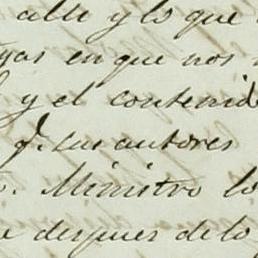 alto y lo que
en que nos
y el contenid
q.e sus autores
Ministro lo
despues de lo